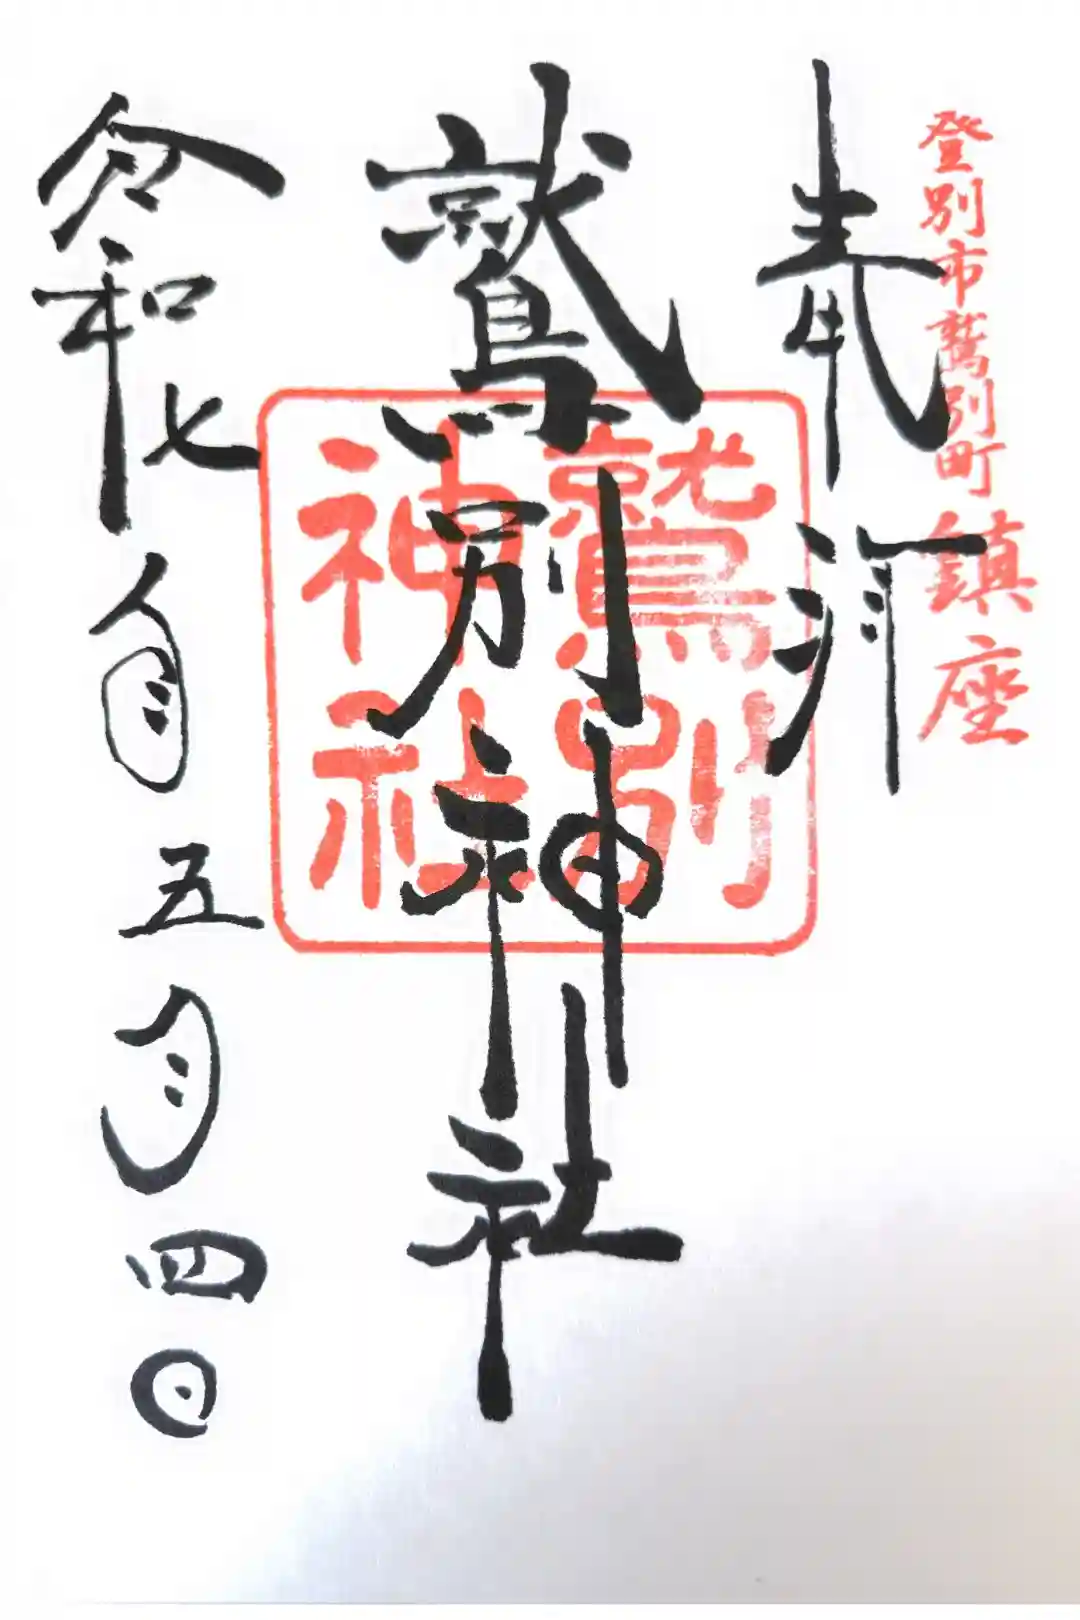 登別市鷲別町鎮座
奉拝
鷲別神社
鷲別
神社
令和七年五月四日